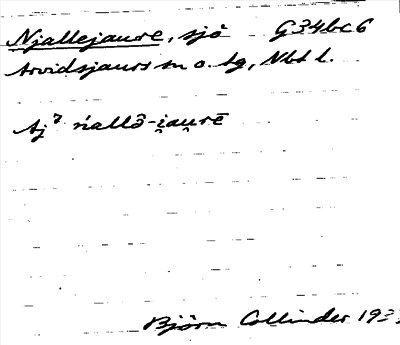 Njallejaure, sjö G34bc6
Arvidsjaurs sn o. tg, Nbt l.
ńallō-i̯au̯rē
Björn Collinder